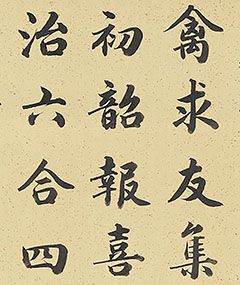 禽求友集
初韶報喜
治六合四